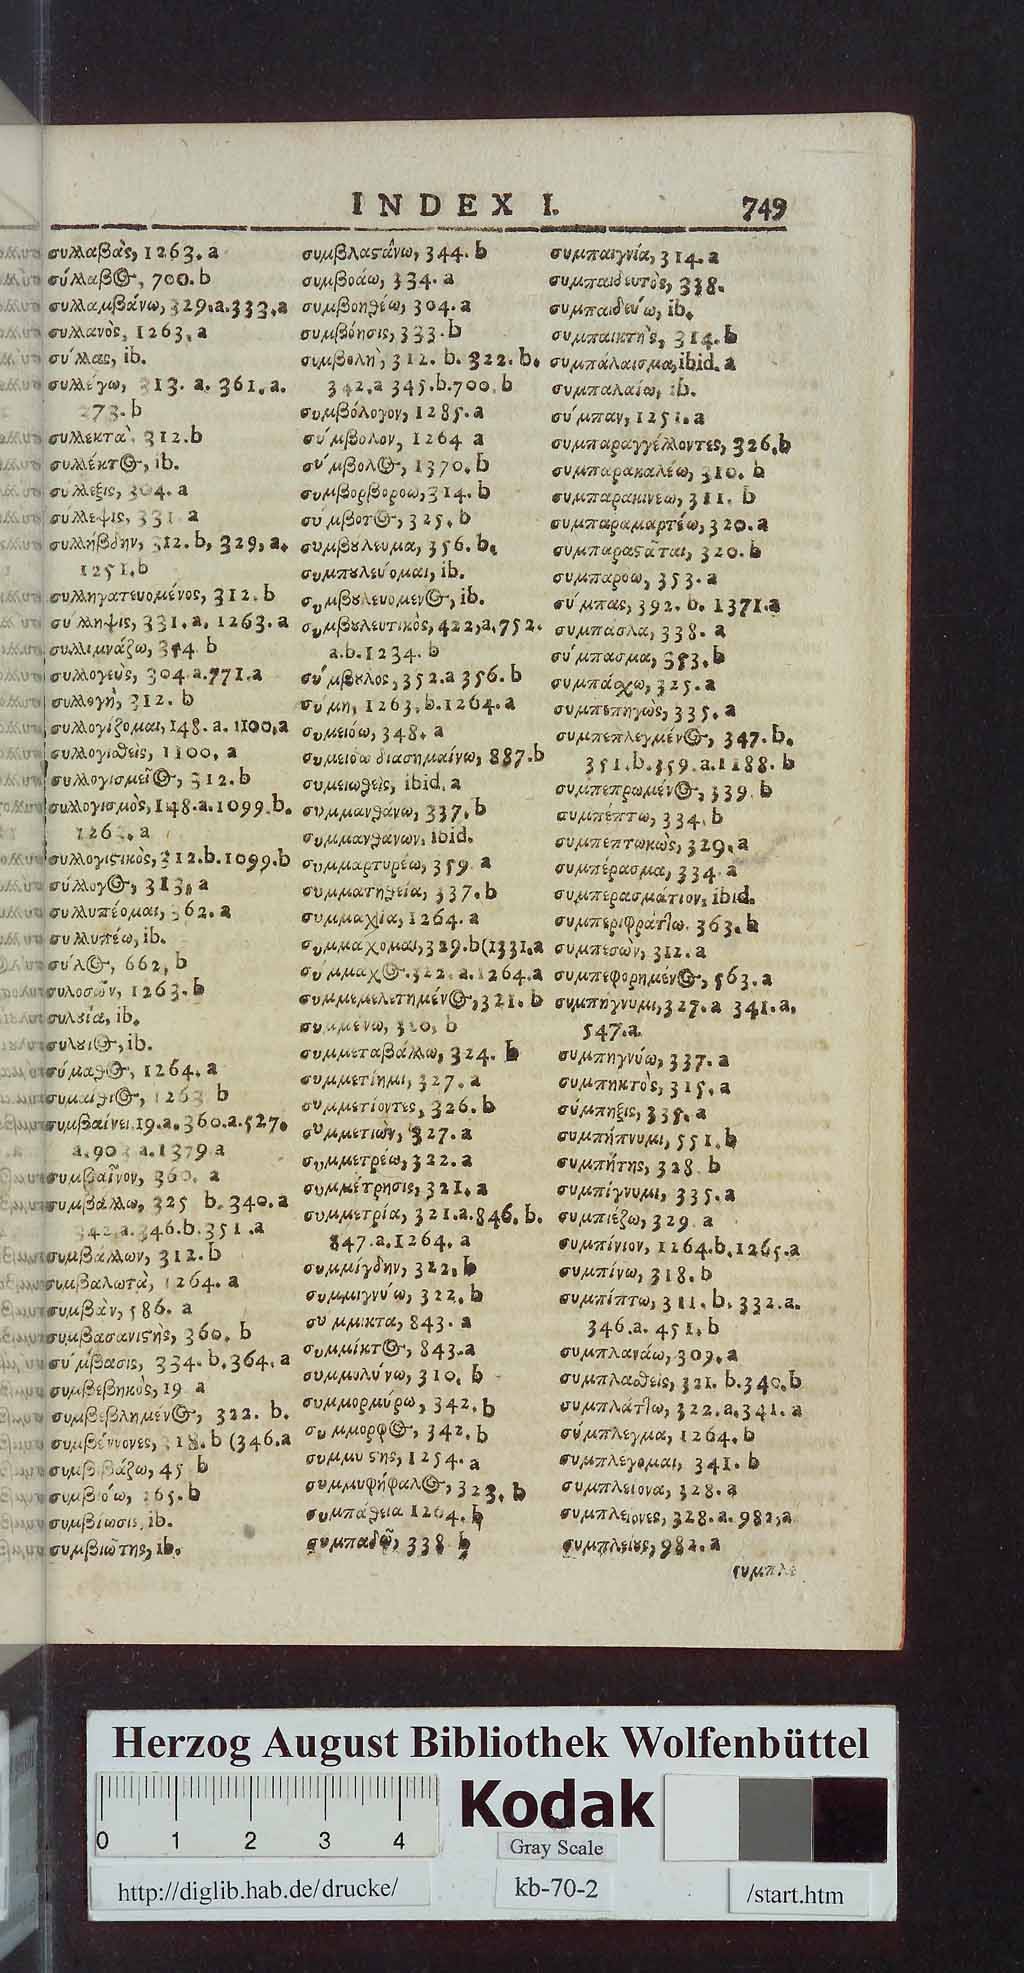 INDEX I. 749
συλλαβὰς, 1263. a
σύλλαβος, 700. b
συλλαμβάνω, 329. a. 333. a
συλλανὸς, 1263. a
σύλλας, ib.
συλλέγω, 313. a. 361. a.
273. b
συλλεκτὰ, 312. b
συλλέκτος, ib.
σύλλεξις, 304. a
σύλλεψις, 331. a
συλλήβδην, 312. b, 329, a.
1251. b
συλληγατευομένος, 312. b
σύλληψις, 331. a. 1263. a
συλλιμνάζω, 354. b
συλλογεὺς, 304 a. 771. a
συλλογὴ, 312. b
συλλογίζομαι, 148. a. 1100, a
συλλογισθεὶς, 1100. a
συλλογισμεῖος, 312. b
συλλογισμὸς, 148. a. 1099. b.
126 . a
συλλογιστικὸς, 312. b. 1099. b
σύλλογος, 313. a
συλλυπέομαι, 362. a
συλλυπέω, ib.
σύλος, 662, b
συλοσῶν, 1263. b
συλουία, ib.
συλουιος, ib.
σύμαθος, 1264. a
συμαίθιος, 1263 b
συμβαίνει, 19. a. 360. a. 527.
a. 903 a. 1379 a
συμβαῖνον, 360. a
συμβάλλω, 325 b. 340. a
342, a. 346. b. 351. a
συμβάλλων, 312. b
συμβαλωτὰ, 1264. a
συμβὰν, 586. a
συμβασανιστὴς, 360. b
σύμβασις, 334. b. 364. a
συμβεβηκὸς, 19 a
συμβεβλημένος, 322. b.
συμβέννονες, 318. b (346. a
συμβιβάζω, 45 b
συμβιόω, 265. b
συμβίωσις, ib.
συμβιώτης, ib.
συμβλαστάνω, 344. b
συμβοάω, 334. a
συμβοηθέω, 304. a
συμβόησις, 333. b
συμβολὴ, 312. b. 322. b.
342, a 345. b. 700. b
συμβόλογον, 1285. a
σύμβολον, 1264 a
σύμβολος, 1370. b
συμβορβορόω, 314. b
σύμβοτος, 325. b
συμβούλευμα, 356. b.
συμπουλεύομαι, ib.
συμβουλευόμενος, ib.
συμβουλευτικὸς, 422, a. 752.
a. b. 1234. b
σύμβουλος, 352. a 356. b
σύμη, 1263. b. 1264. a
συμειόω, 348. a
συμειόω διασημαίνω, 887. b
συμειωθεὶς, ibid. a
συμμανθάνω, 337. b
συμμανθάνων, ibid.
συμμαρτυρέω, 359 a
συμματηθεία, 337. b
συμμαχία, 1264. a
συμμάχομαι, 329. b (1331. a
σύμμαχος. 322. a. 1264. a
συμμεμελετημένος, 321. b
συμμένω, 310, b
συμμεταβάλλω, 324. b
συμμετίημι, 327. a
συμμετίοντες, 326. b
συμμετιὼν, 327. a
συμμετρέω, 322. a
συμμέτρησις, 321. a
συμμετρία, 321. a. 846. b.
847. a. 1264. a
συμμίγδην, 322. b
συμμιγνύω, 322. b
σύμμικτα, 843. a
συμμίκτος, 843. a
συμμολύνω, 310. b
συμμορμύρω, 342. b
σύμμορφος, 342. b
συμμύστης, 1254. a
συμμυφήφαλος, 323. b
συμπάθεια 1264. b
συμπαδῶ, 338 b
συμπαιγνία, 314. a
συμπαιδευτὸς, 338.
συμπαιδεύω, ib.
συμπαικτὴς, 314. b
συμπάλαισμα, ibid. a
συμπαλαίω, ib.
σύμπαν, 1251. a
συμπαραγγέλλοντες, 326. b
συμπαρακαλέω, 310. b
συμπαρακινέω, 311. b
συμπαραμαρτέω, 320. a
συμπαραστᾶται, 320. b
συμπαρόω, 353. a
σύμπας, 392. b. 1371. a
συμπάσλα, 338. a
σύμπασμα, 353. b
συμπάσχω, 325. a
συμπεπηγὼς, 335. a
συμπεπλεγμένος, 347. b.
351. b. 359. a. 1188. b
συμπεπρωμένος, 339. b
συμπέπτω, 334. b
συμπεπτωκὼς, 329. a
συμπέρασμα, 334 a
συμπερασμάτιον, ibid.
συμπεριφράττω. 363. b
συμπεσὼν, 312. a
συμπεφορημένος, 563. a
συμπηγνυμι, 327. a 341. a.
547. a.
συμπηγνύω, 337. a
συμπηκτὸς, 315. a
σύμπηξις, 335. a
συμπήπνυμι, 551. b
συμπήτης, 328 b
συμπίγνυμι, 335. a
συμπιέζω, 329 a
συμπίνιον, 1264. b. 1265. a
συμπίνω, 318. b
συμπίπτω, 311. b. 332. a.
346. a. 451. b
συμπλανάω, 309. a
συμπλασθεὶς, 321. b. 340. b
συμπλάττω, 322. a. 341. a
σύμπλεγμα, 1264. b
συμπλέγομαι, 341. b
συμπλείονα, 328. a
συμπλείονες, 328. a. 982, a
συμπλείους, 982. a
συμπλε
Herzog August Bibliothek Wolfenbüttel
Kodak
Gray Scale
0 1 2 3 4
http://diglib.hab.de/drucke/
kb-70-2
/start.htm